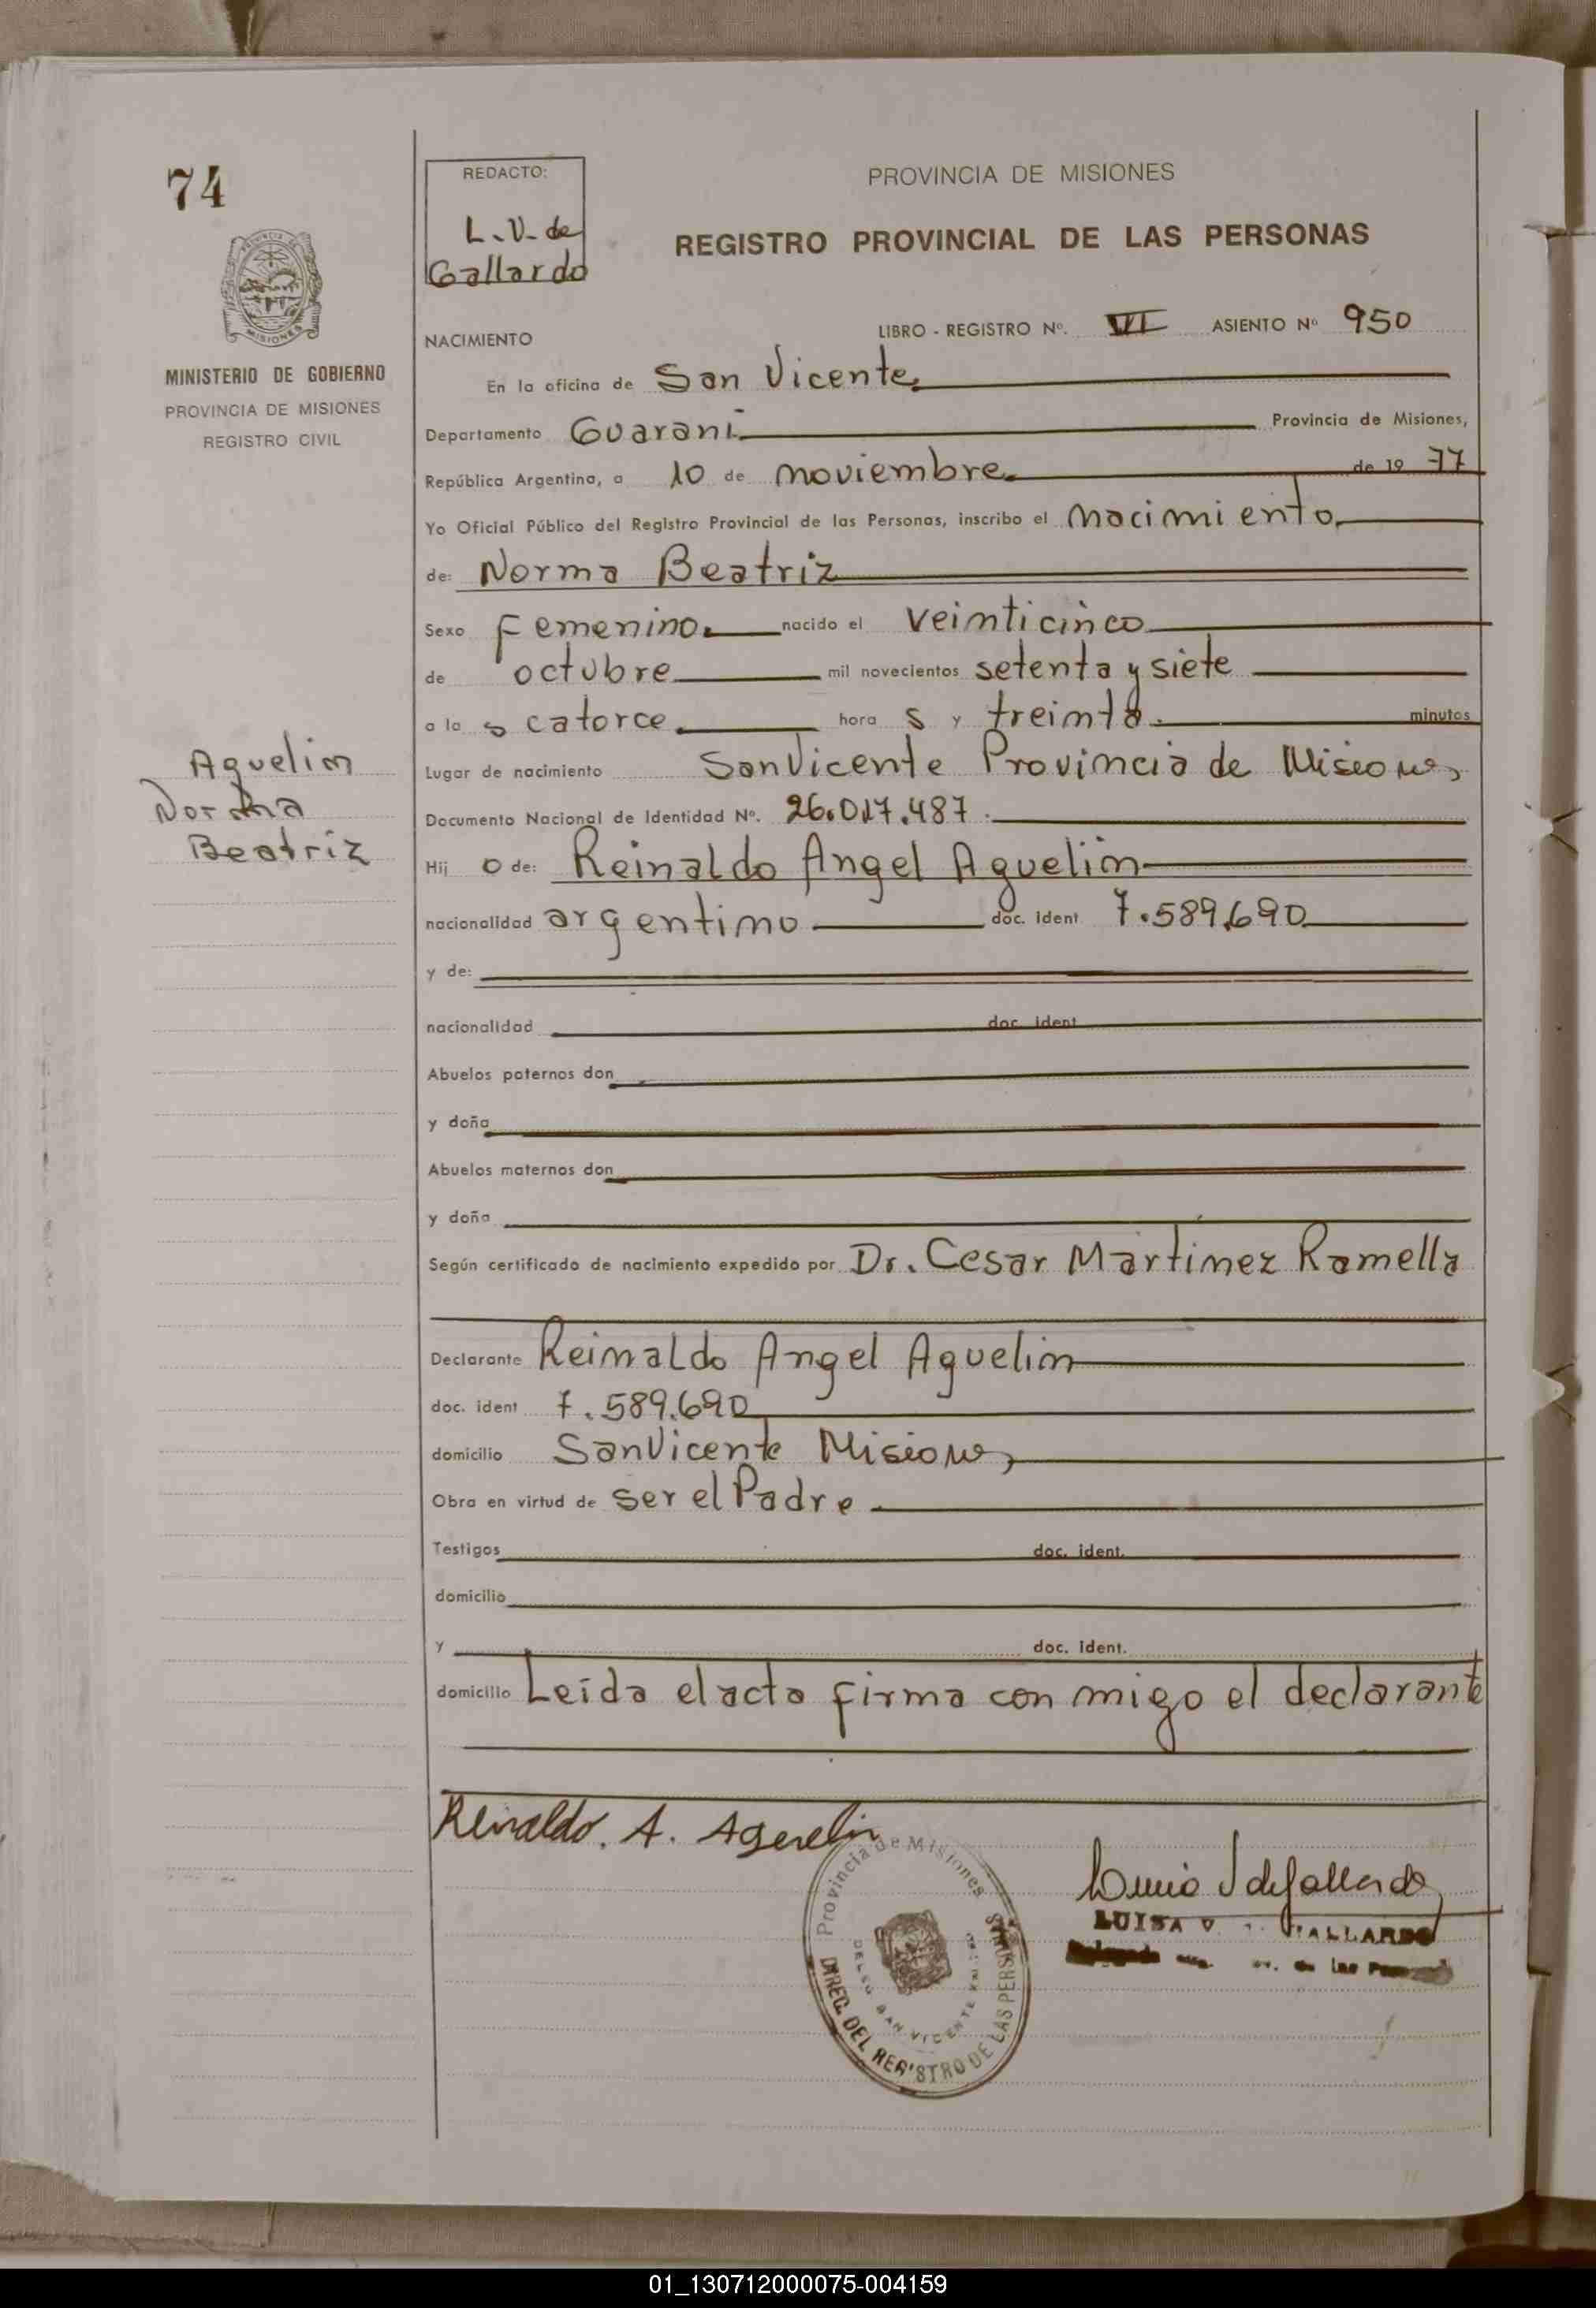 74
REDACTO:
L.V. de
Gallardo
PROVINCIA DE MISIONES
REGISTRO PROVINCIAL DE LAS PERSONAS
MISIONES
MINISTERIO DE GOBIERNO
PROVINCIA DE MISIONES
REGISTRO CIVIL
NACIMIENTO LIBRO - REGISTRO Nº. VI ASIENTO Nº 950
En la oficina de San Vicente
Departamento Guarani Provincia de Misiones,
República Argentina, a 10 de noviembre de 19 77
Yo Oficial Público del Registro Provincial de las Personas, inscribo el nacimiento
de: Norma Beatriz
Sexo Femenino nacido el veinticinco
de octubre mil novecientos setenta y siete
a la s catorce hora s y treinta minutos
Aguelin
Norma
Beatriz
Lugar de nacimiento San Vicente Provincia de Misiones
Documento Nacional de Identidad Nº. 26.017.487
Hij o de: Reinaldo Angel Aguelin
nacionalidad argentino doc. ident 7.589.690
y de:
nacionalidad doc. ident
Abuelos paternos don
y doña
Abuelos maternos don
y doña
Según certificado de nacimiento expedido por Dr. Cesar Martinez Ramella
Declarante Reinaldo Angel Aguelin
doc. ident 7.589.690
domicilio San Vicente Misiones
Obra en virtud de ser el Padre
Testigos doc. ident.
domicilio
y doc. ident.
domicilio Leida el acta firma con migo el declarante
Reinaldo. A. Aguelin
Provincia de Misiones
DIREC. DEL REGISTRO DE LAS PERSONAS
SAN VICENTE
de Gallardo
LUISA V. GALLARDO
de las
01_130712000075-004159